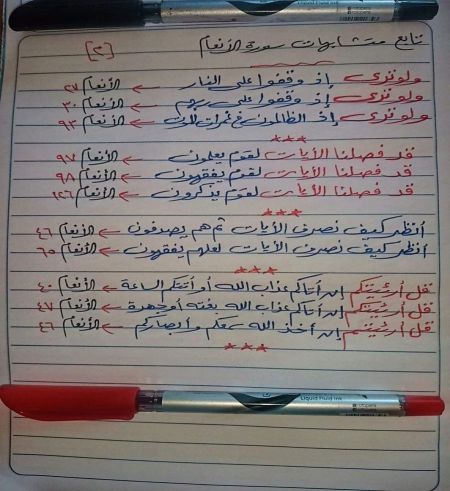 تابع متشابهات سورة الأنعام [٣]
ولو ترى إذ وقفوا على النار ← الأنعام ٢٧
ولو ترى إذ وقفوا على ربهم ← الأنعام ٣٠
ولو ترى إذ الظالمون في غمرات الموت ← الأنعام ٩٣
***
قد فصلنا الأيات لقوم يعلمون ← الأنعام ٩٧
قد فصلنا الأيات لقوم يفقهون ← الأنعام ٩٨
قد فصلنا الأيات لقوم يذكرون ← الأنعام ١٢٦
***
أنظر كيف نصرف الأيات ثم هم يصدفون ← الأنعام ٤٦
أنظر كيف نصرف الأيات لعلهم يفقهون ← الأنعام ٦٥
***
قل أرءيتكم إن أتاكم عذاب الله أو أتتكم الساعة ← الأنعام ٤٠
قل أرءيتكم إن أتاكم عذاب الله بغتة أو جهرة ← الأنعام ٤٧
قل أرءيتم إن أخذ الله سمعكم وأبصاركم ← الأنعام ٤٦
***
Liquid Fluid Ink